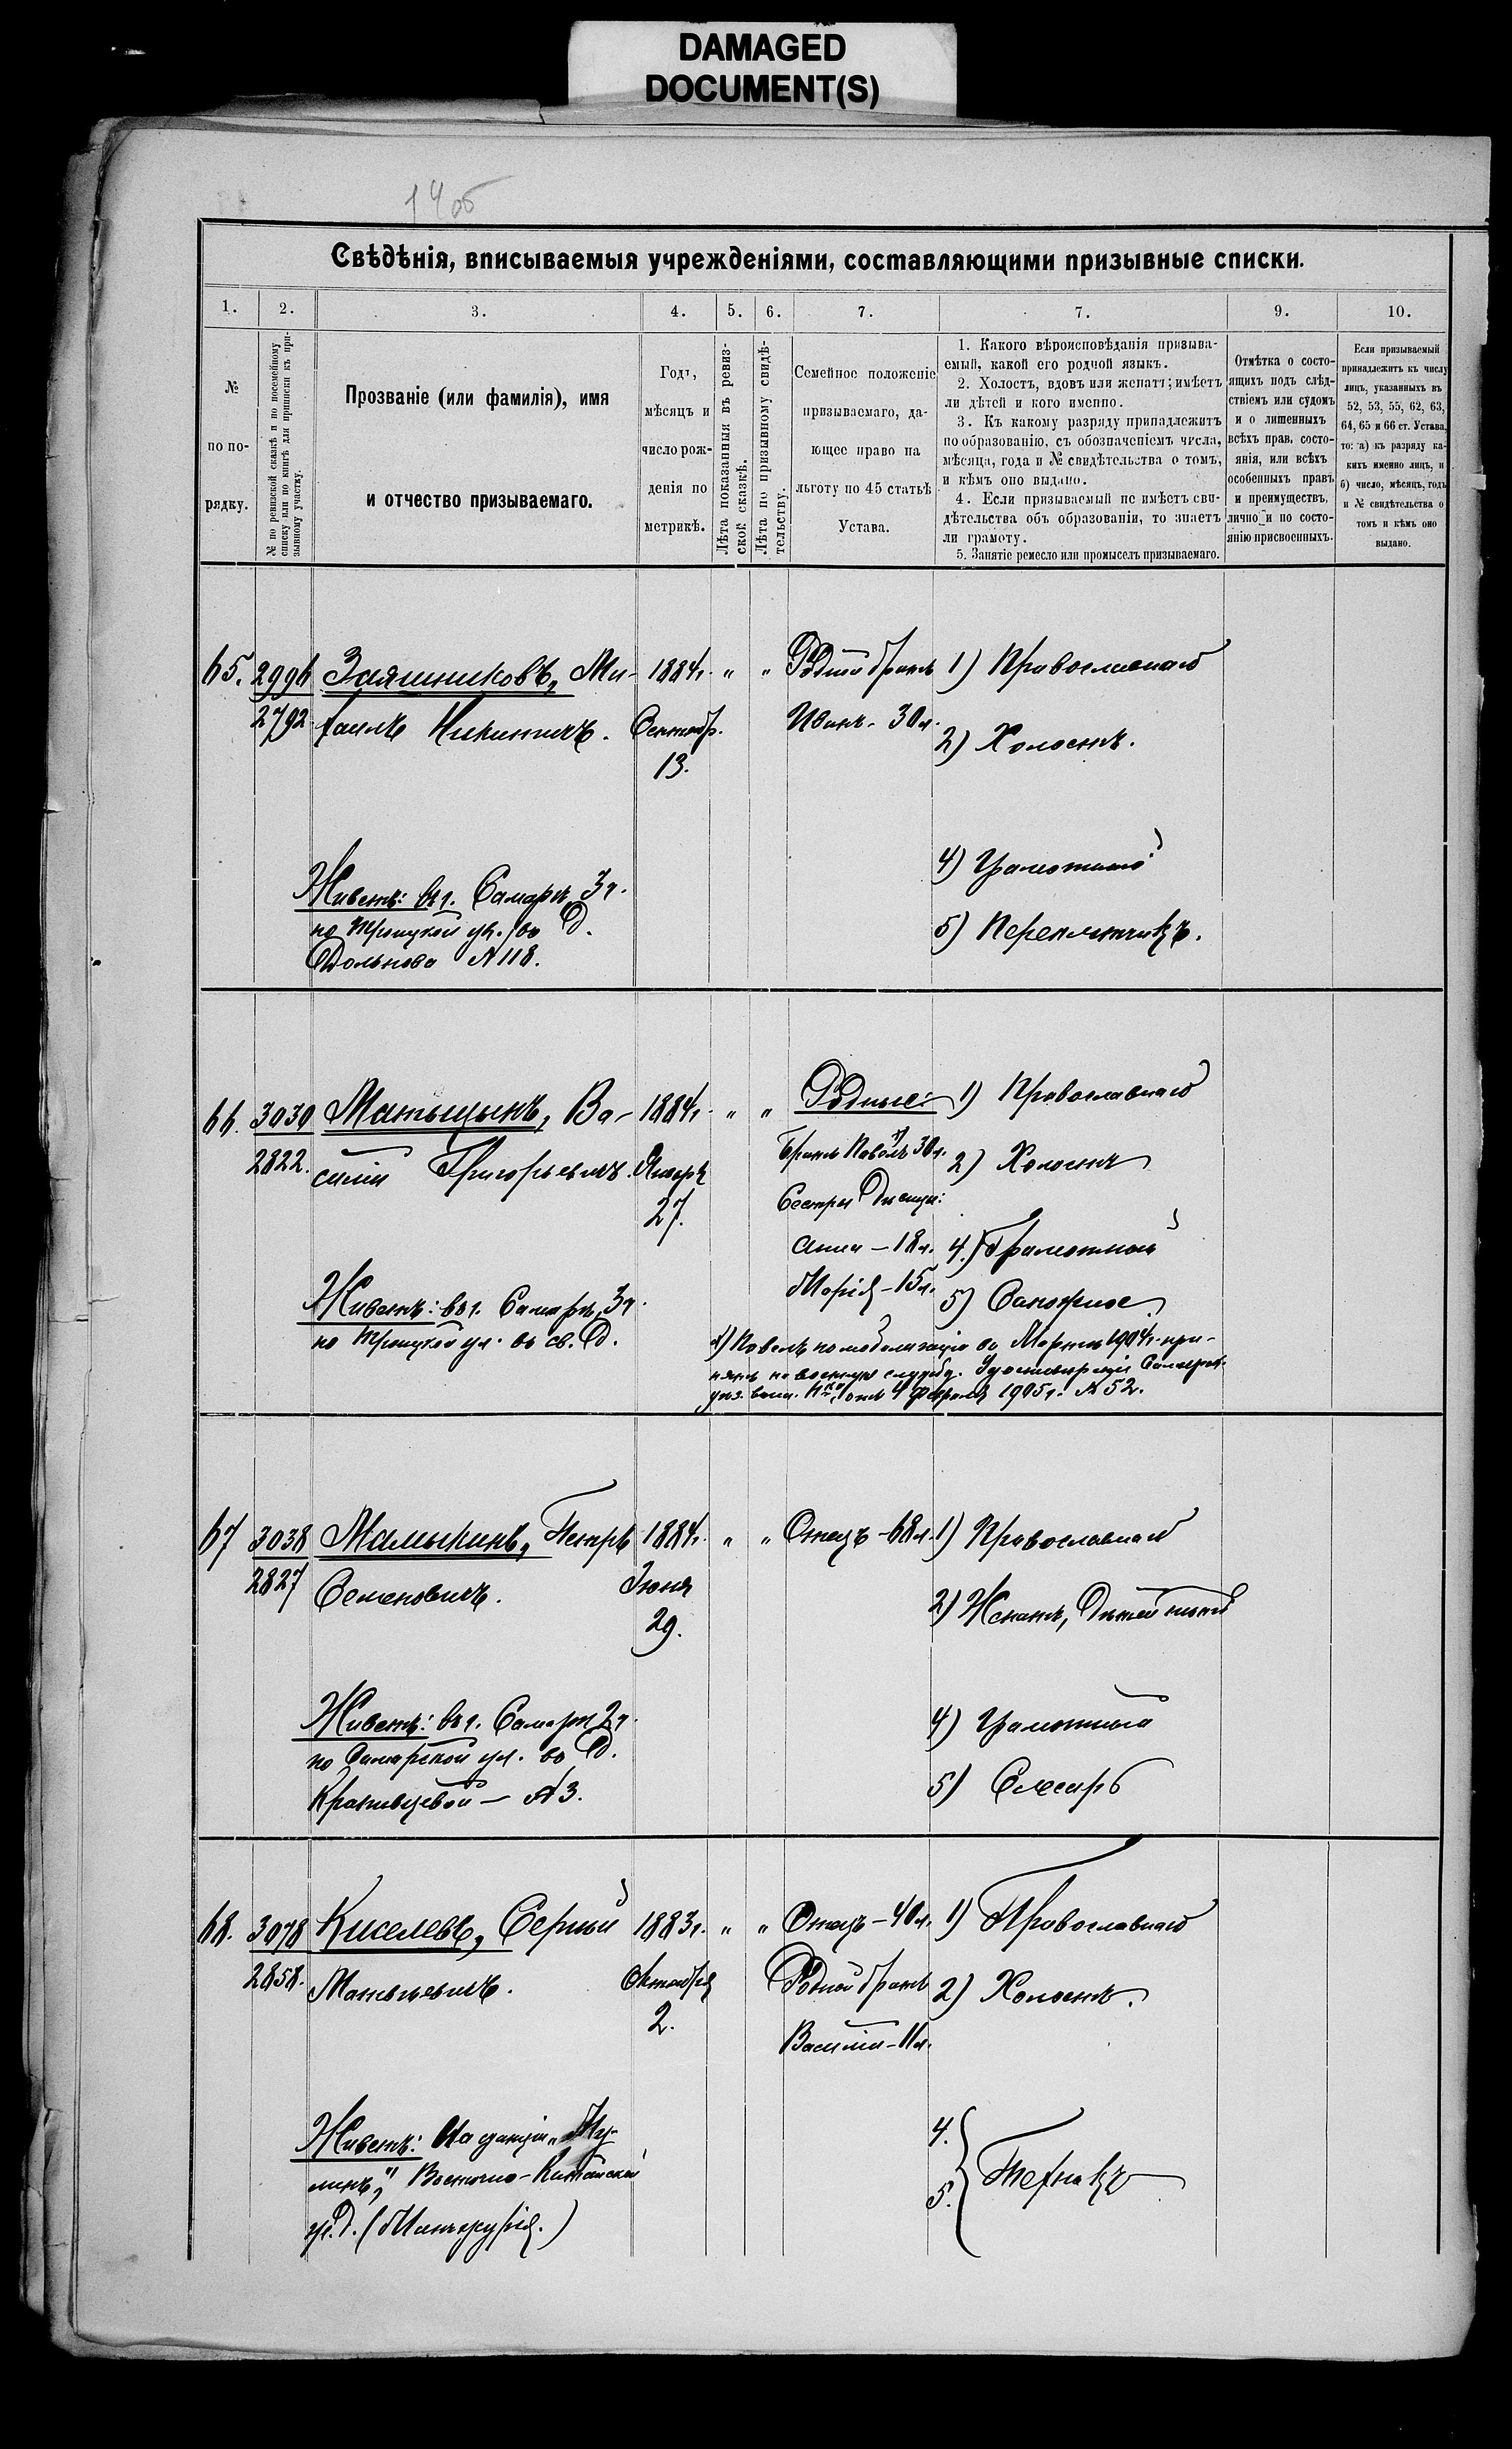 DAMAGED
DOCUMENT(S)
14об
Свѣдѣнія, вписываемыя учрежденіями, составляющими призывные списки.
1. 2. 3. 4. 5. 6. 7. 7. 9. 10.
№
по по-
рядку.
№ по ревизской сказкѣ и по посемейному
списку или по книгѣ для приписки къ при-
зывному участку.
Прозваніе (или фамилія), имя
и отчество призываемаго.
Годъ,
мѣсяцъ и
число рож-
денія по
метрикѣ.
Лѣта показанныя въ ревиз-
ской сказкѣ.
Лѣта по призывному свидѣ-
тельству.
Семейное положеніе
призываемаго, да-
ющее право на
льготу по 45 статьѣ
Устава.
1. Какого вѣроисповѣданія призыва-
емый, какой его родной языкъ.
2. Холостъ, вдовъ или женатъ; имѣетъ
ли дѣтей и кого именно.
3. Къ какому разряду принадлежитъ
по образованію, съ обозначеніемъ числа,
мѣсяца, года и № свидѣтельства о томъ,
и кѣмъ оно выдано.
4. Если призываемый не имѣетъ сви-
дѣтельства объ образованіи, то знаетъ
ли грамоту.
5. Занятіе ремесло или промыселъ призываемаго.
Отмѣтка о состо-
ящихъ подъ слѣд-
ствіемъ или судомъ
и о лишенныхъ
всѣхъ прав, состо-
янія, или всѣхъ
особенныхъ правъ
и преимуществъ,
лично и по состо-
янію присвоенныхъ.
Если призываемый
принадлежитъ къ числу
лицъ, указанныхъ въ
52, 53, 55, 62, 63,
64, 65 и 66 ст. Устава,
то: а) къ разряду ка-
кихъ именно лицъ, и
б) число, мѣсяцъ, годъ
и № свидѣтельства о
томъ и кѣмъ оно
выдано.
65. 2996 Ми- 1884г. " " Родной братъ 1) Православнаго
2792 хаилъ Никитичъ. Сентябр. Иванъ - 30л.
13.
2) Холостъ.
4) Грамотный
5) Переплетчикъ.
Живетъ: въ г. Самарѣ, 3ч.
по Троицкой ул. въ д.
№ 118.
66. 3030 Матыцынъ, Ва- 1884г. " " Родные: 1) Православнаго
2822. силій Григорьевичъ. Января Братъ Павелъ 30л. 2) Холостъ
27. Сестры дѣвицы:
Анна - 18л. 4) Грамотный
Марія - 15л. 5) Сапожное
Живетъ: въ г. Самарѣ, 3ч.
по Троицкой ул. въ св. д.
х) Павелъ по мобилизаціи въ Мартѣ 1904г. при-
нятъ на военную службу. Удостовѣреніе Самарск.
уѣз. воин. Н-ка, отъ 4 Февраля 1905г. № 52.
67 3038 Малыкинъ, Петръ 1884г. " " Отецъ - 68л. 1) Православнаго
2827 Семеновичъ. Іюня
29.
2) Женатъ, дѣтей нѣтъ
4) Грамотный
5) Слесарь
Живетъ: въ г. Самарѣ 2ч.
по Самарской ул. въ д.
№ 3.
68. 3078 Киселевъ, Сергѣй 1883г. " " Отецъ - 40л. 1) Православнаго
2858. Матвѣевичъ. Октября Родной братъ 2) Холостъ.
2. Василій - 11л.
Живетъ: На станціи „Му-
линъ", Восточно-Китайской
ж. д. (Манчжурія.)
4.
5. Технакъ